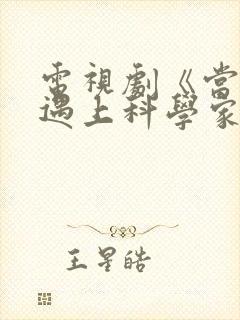 電視劇《當
遇上科學家
王星皓